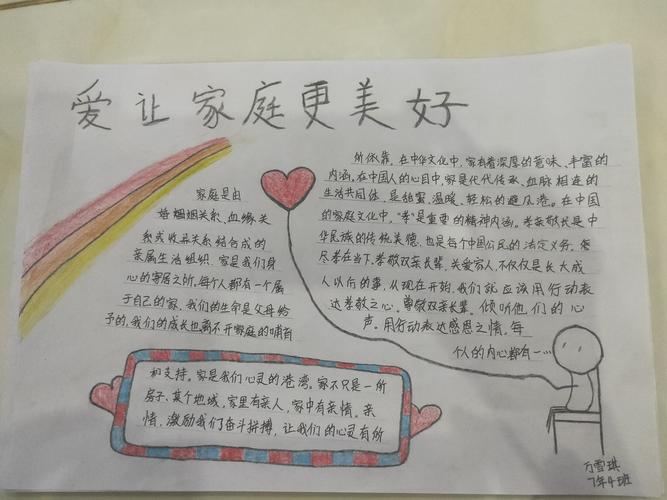 爱让家庭更美好
家庭是由
婚姻姻关系、血缘关
系或收养关系结合成的
亲属生活组织。家是我们身
心的寄居之所,每个人都有一个属
于自己的家。我们的生命是父母给
予的,我们的成长也离不开家庭的哺育
和支持。家是我们心灵的港湾。家不只是一所
房子、某个地域,家里有亲人,家中有亲情。亲
情,激励我们奋斗拼搏,让我们的心灵有所
所依靠。在中华文化中,家有着深厚的意味、丰富的
内涵。在中国人的心目中,家是代代传承、血脉相连的
生活共同体,是甜蜜、温暖、轻松的避风港。在中国
的家庭文化中,“孝”是重要的精神内涵。孝亲敬长是中
华民族的传统美德,也是每个中国公民的法定义务。
尽孝在当下。孝敬双亲长辈,关爱家人,不仅仅是长大成
人以后的事,从现在开始,我们就应该用行动表
达孝敬之心。尊敬双亲长辈。倾听他们的心
声。用行动表达感恩之情。每
个人的内心都有一…
万雪琪
7年4班